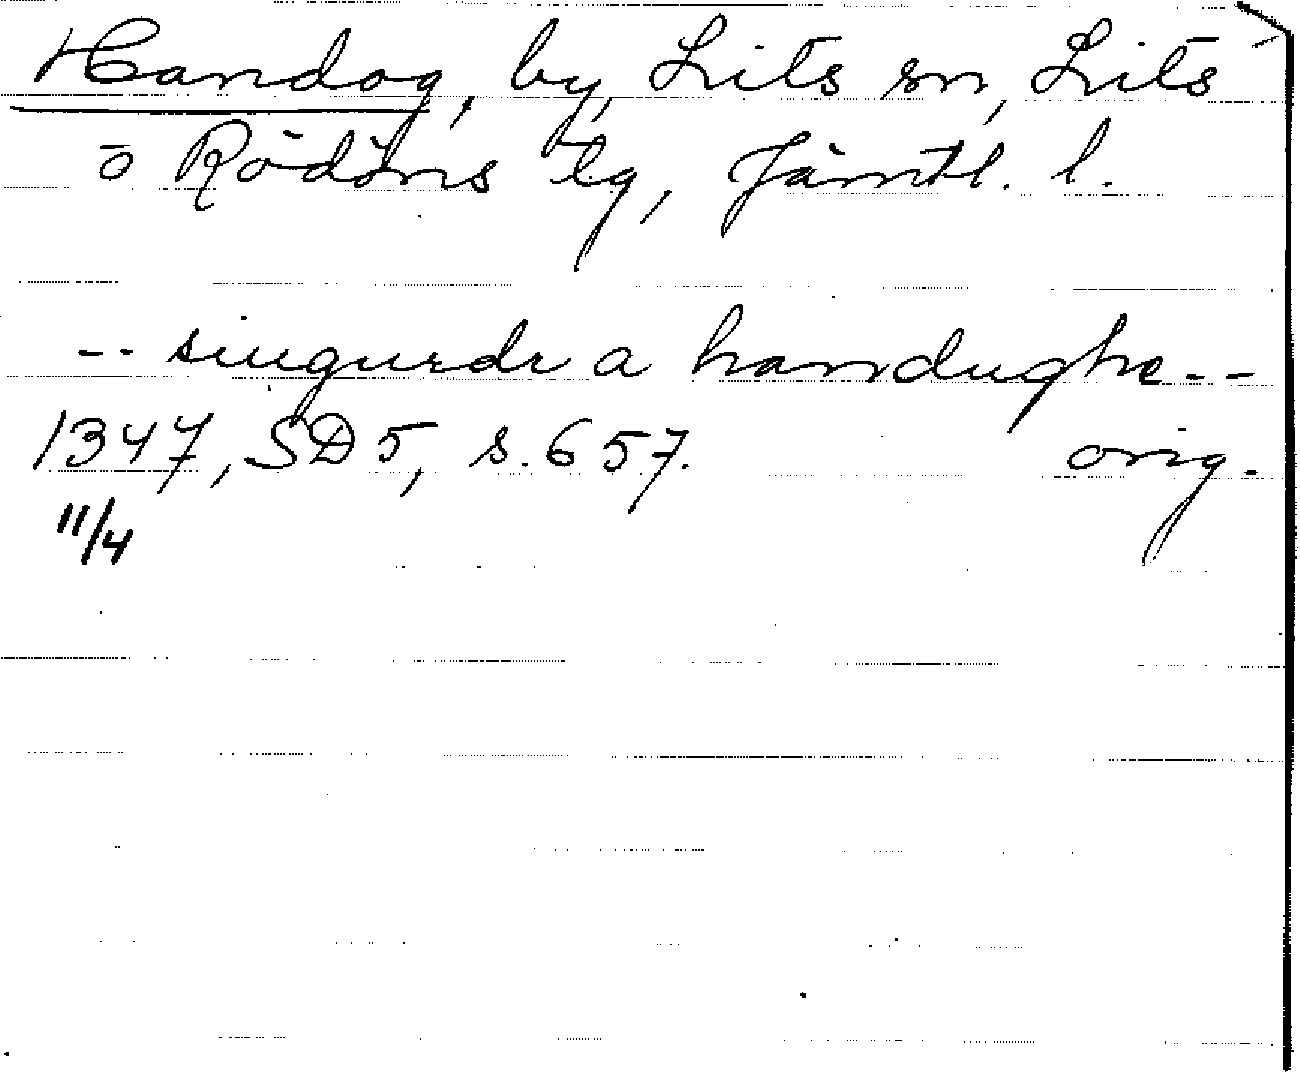 Handog, by, Lits sn, Lits
o Rödöns tg, Jämtl. l.
-- siugurdr a handughe --
1347, SD 5, s. 657. orig.
11/4